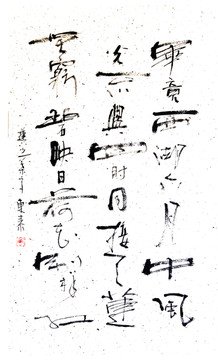 畢竟西湖六月中風
光不與四時同接天蓮
無窮碧映日荷花別樣紅